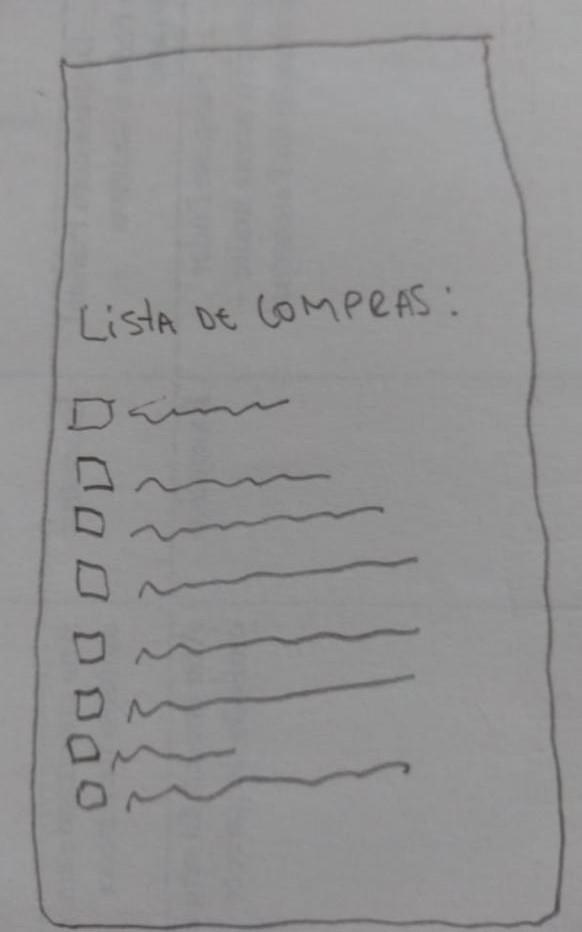 LISTA DE COMPRAS: